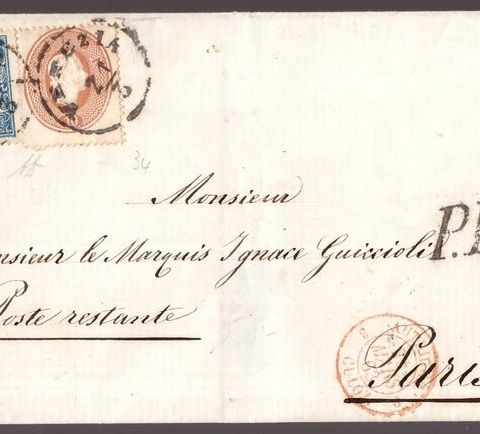 VENEZIA
34
Monsieur
nsieur le Marquis Ignace Guiccioli
Poste restante
P.
Paris